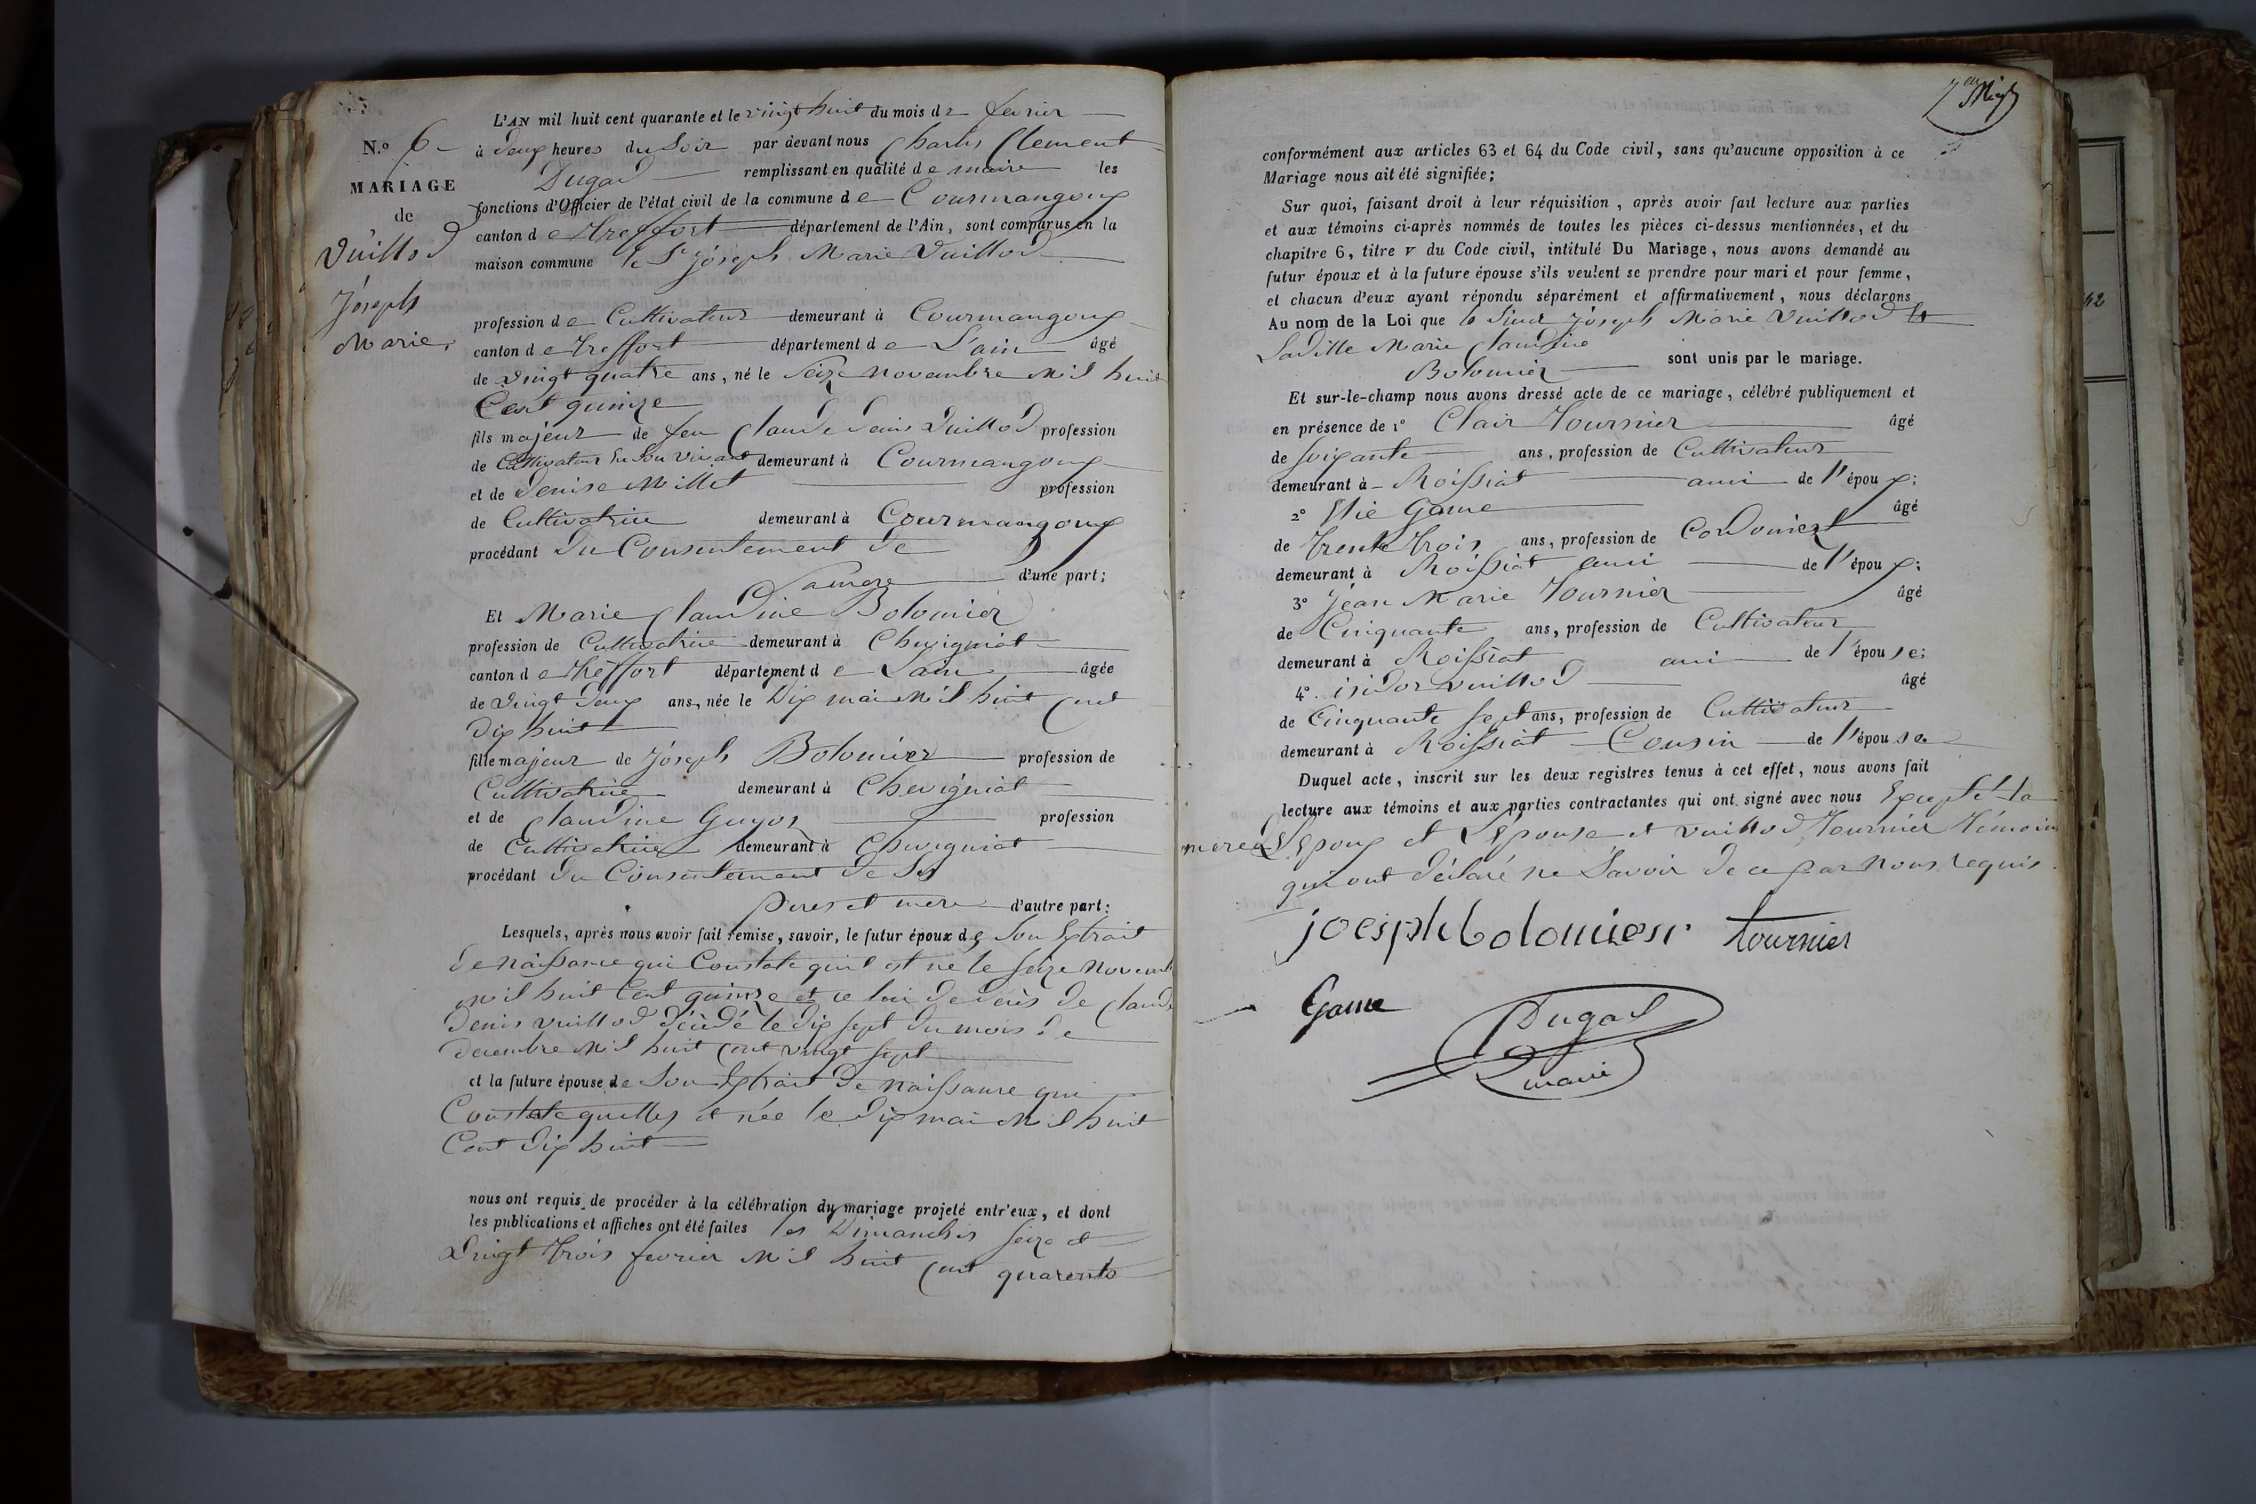 N.o 6
MARIAGE
de
Vuillod
Joseph
Marie
L'AN mil huit cent quarante et le vingt huit du mois de fevrier
à deux heures du Soir par devant nous Charles Clement
Dugad remplissant en qualité de maire les
fonctions d'Officier de l'état civil de la commune de Courmangoux
canton de treffort département de l'Ain, sont comparus en la
maison commune le Sr joseph Marie Vuillod
profession de Cultivateur demeurant à Courmangoux
canton de treffort département de L'ain âgé
de vingt quatre ans, né le Seize novembre Mil huit
Cent quinze
fils majeur de feu Claude Denis Vuillod profession
de Cultivateur En Son vivant demeurant à Courmangoux
et de Denise Millet profession
de Cultivatrice demeurant à Courmangoux
procédant Du Consentement de
Sa mere d'une part;
Et Marie Claudine Bolomier
profession de Cultivatrice demeurant à Chevigniat
canton de treffort département de Lain âgée
de vingt deux ans, née le Dix mai Mil huit Cent
dix huit
fille majeur de joseph Bolomier profession de
Cultivatrice demeurant à Chevigniat
et de Claudine Guyot profession
de Cultivatrice demeurant à Chevigniat
procédant du Consentement de Ses
peres et mere d'autre part;
Lesquels, après nous avoir fait remise, savoir, le futur époux de Son Extrait
de naissance qui Constate quil est né le Seize Novemb
Mil huit Cent quinze et celui de décès de Claude
Denis vuillod décédé le dix sept du mois de
decembre Mil huit Cent vingt sept
et la future épouse de Son Extrait de naissance qui
Constate quelles et née le dix mai Mil huit
Cent dix huit
nous ont requis de procéder à la célébration du mariage projeté entr'eux, et dont
les publications et affiches ont été faites les Dimanches seize et
Vingt trois fevrier Mil huit Cent quarente
conformément aux articles 63 et 64 du Code civil, sans qu'aucune opposition à ce
Mariage nous ait été signifiée;
Sur quoi, faisant droit à leur réquisition, après avoir fait lecture aux parties
et aux témoins ci-après nommés de toutes les pièces ci-dessus mentionnées, et du
chapitre 6, titre v du Code civil, intitulé Du Mariage, nous avons demandé au
futur époux et à la future épouse s'ils veulent se prendre pour mari et pour femme,
et chacun d'eux ayant répondu séparément et affirmativement, nous déclarons
Au nom de la Loi que le Sieur joseph Marie Vuillod Et
Ladille Marie Claudine
Bolomier sont unis par le mariage.
Et sur-le-champ nous avons dressé acte de ce mariage, célébré publiquement et
en présence de 1o Clair Tournier âgé
de Soixante ans, profession de Cultivateur
demeurant à Roissiat ami de l'époux;
2o Elie Game âgé
de trente trois ans, profession de Cordonier
demeurant à Roissiat ami de l'époux;
3o Jean Marie Tournier âgé
de Cinquante ans, profession de Cultivateur
demeurant à Roissiat ami de l'épouse;
4o isidor vuillod âgé
de Cinquante Sept ans, profession de Cultivateur
demeurant à Roissiat Cousin de l'épouse
Duquel acte, inscrit sur les deux registres tenus à cet effet, nous avons fait
lecture aux témoins et aux parties contractantes qui ont signé avec nous Excepté la
mere de L'Epoux et L'Epouse et vuillod Tournier témoins
qui ont déclaré ne Savoir de ce par Nous requis
joesph bolomier tournier
Game
Dugad
maire